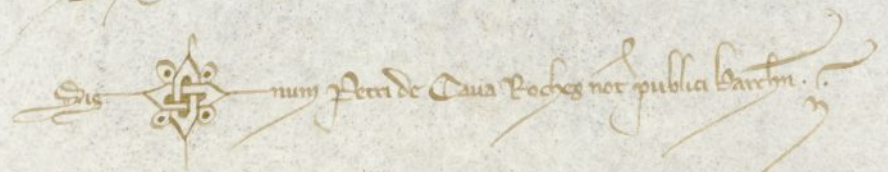 Sig num Petri de Cava Roches not publici barchn.